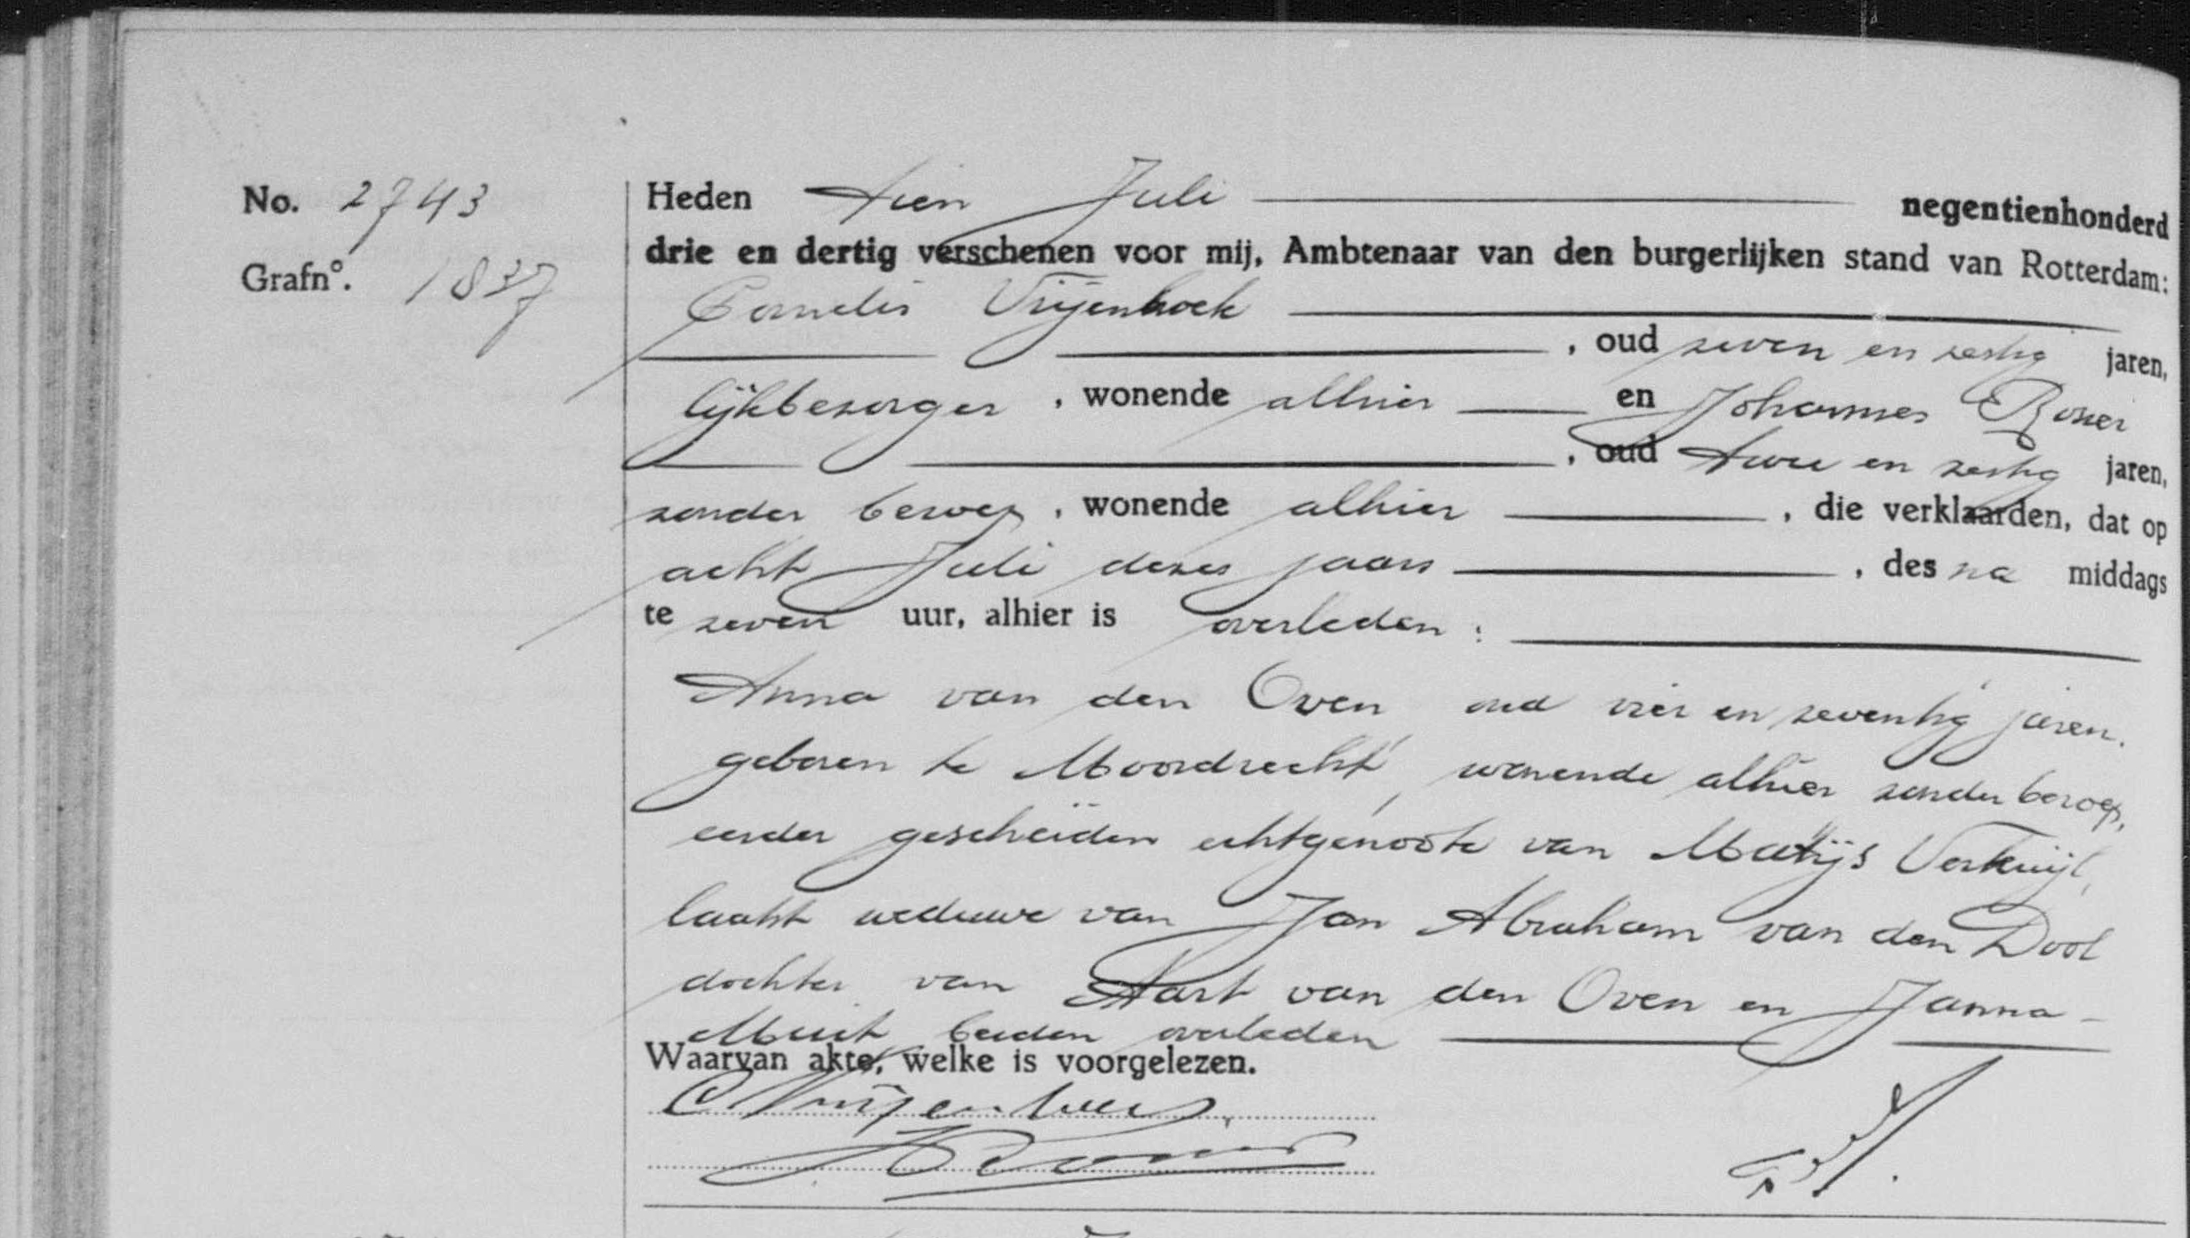 No. 2743
Grafn°. 1837
Heden tien Juli negentienhonderd
drie en dertig verschenen voor mij, Ambtenaar van den burgerlijken stand van Rotterdam:
Cornelis Vrijenhoek
, oud zeven en zestig jaren,
lijkbezorger, wonende alhier en Johannes
, oud twee en zestig jaren,
zonder beroep, wonende alhier, die verklaarden, dat op
acht Juli dezes jaars, des na middags
te zeven uur, alhier is overleden:
Anna van den Oven oud vier en zeventig jaren.
geboren te Moordrecht, wonende alhier zonder beroep,
eerder gescheiden echtgenoote van Matijs Verkuijl,
laatst weduwe van Jan Abraham van den Dool
dochter van Aart van den Oven en Janna
beiden overleden
Waarvan akte, welke is voorgelezen.